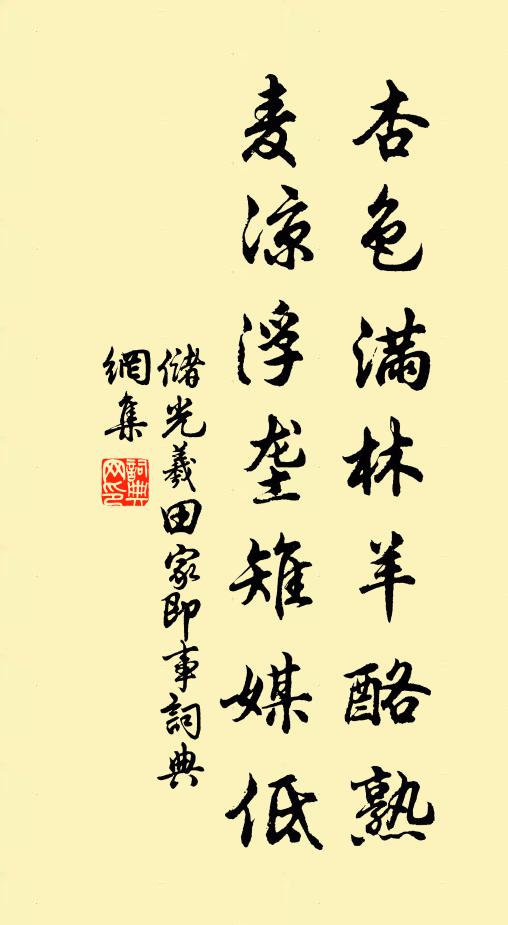 杏色满林羊酪熟
麦凉浮垄雉媒低
儲光羲田家即事詞典
網集
詞典
网印